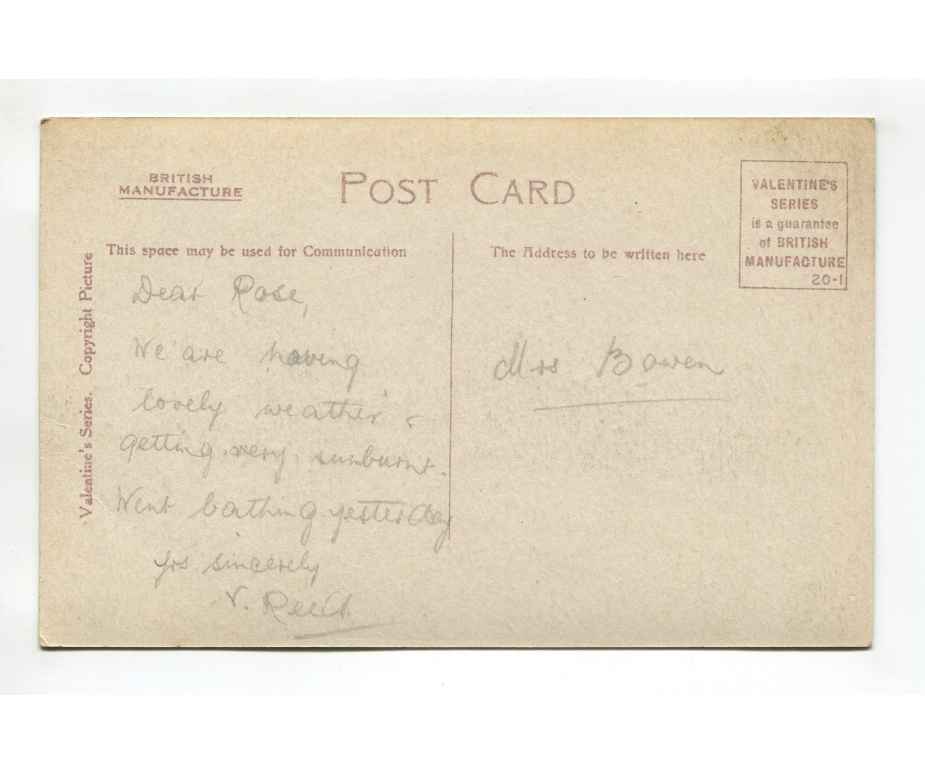 BRITISH
MANUFACTURE
POST CARD
VALENTINE'S
SERIES
is a guarantee
of BRITISH
MANUFACTURE
20-1
This space may be used for Communication
The Address to be written here
Valentine's Series. Copyright Picture
Dear Rose,
We are having
lovely weather &
getting very sunburnt.
Went bathing yesterday
yrs sincerely
V.
Mrs Bowen